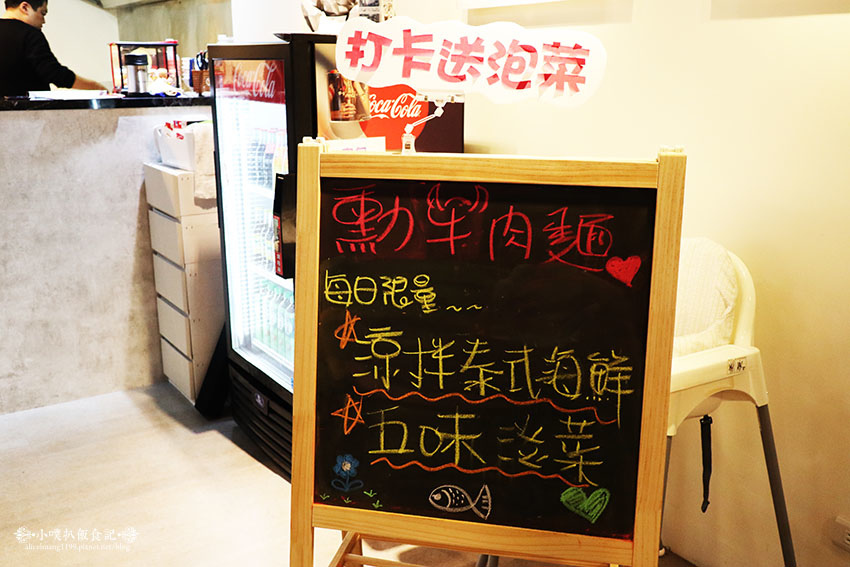 打卡送泡菜
Coca-Cola
Coca-Cola
勳牛肉麵
每日限量~~
涼拌泰式海鮮
五味泡菜
小噗扒飯食記